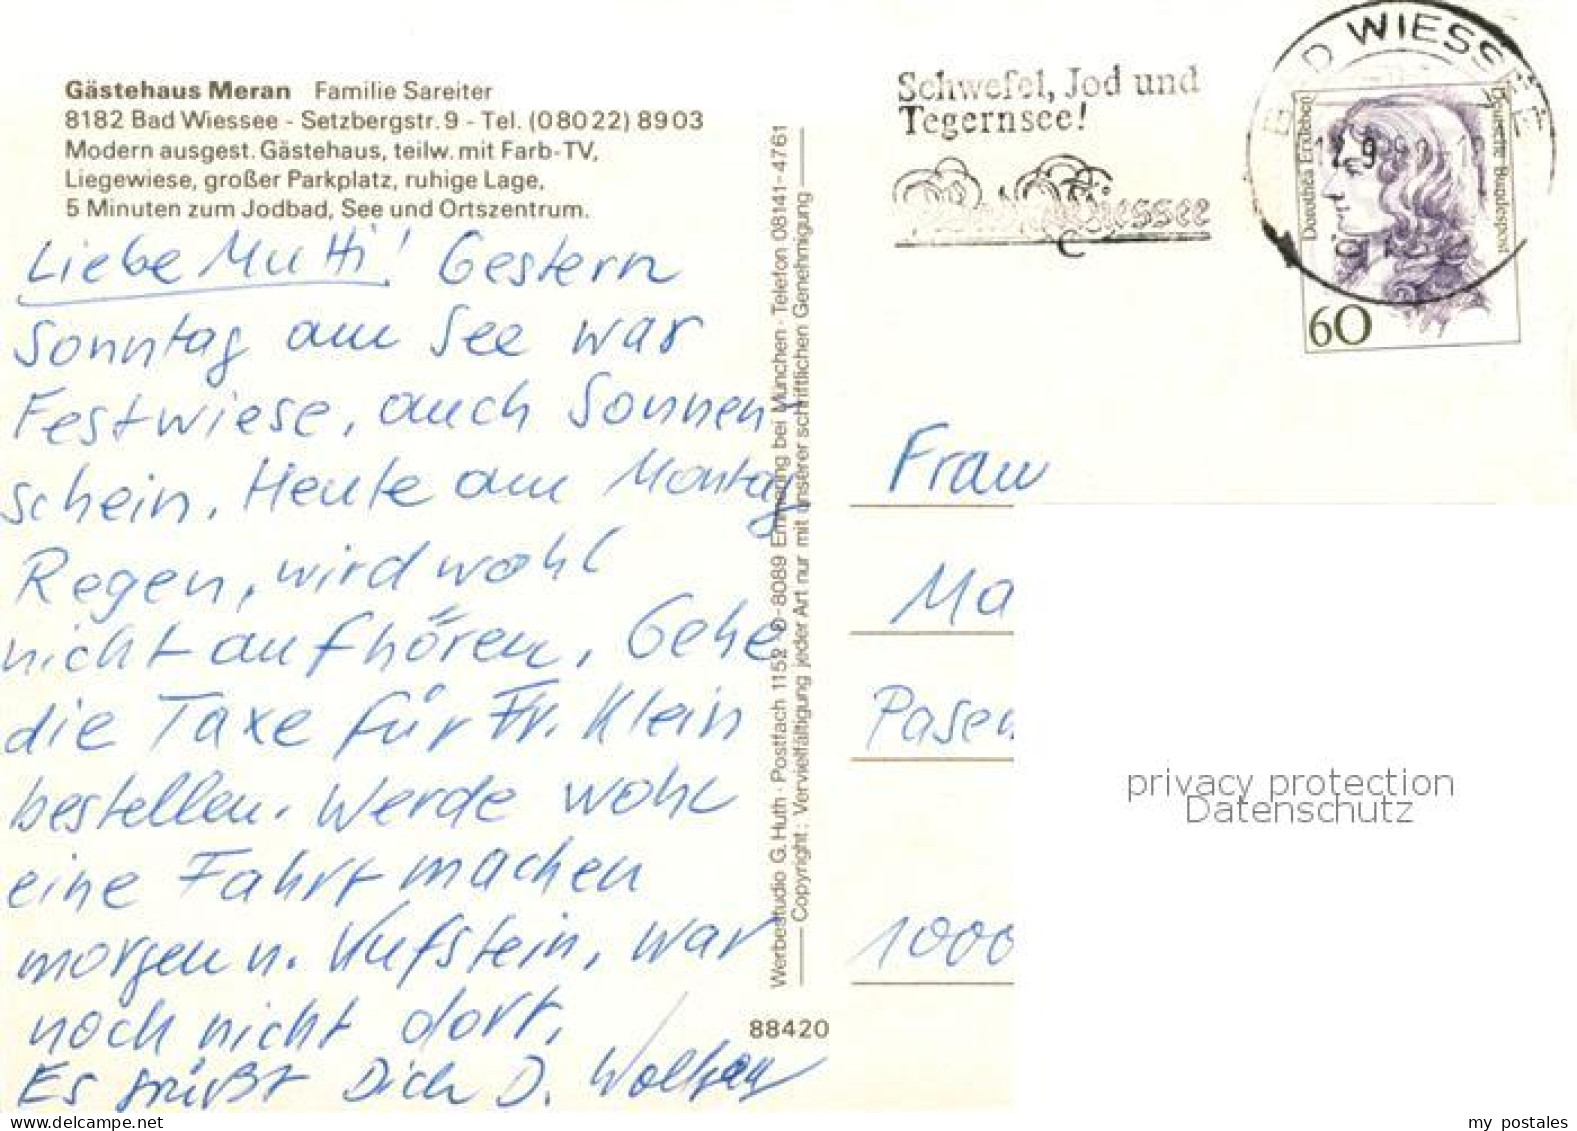 Gästehaus Meran Familie Sareiter
8182 Bad Wiessee - Setzbergstr. 9 - Tel. (08022) 8903
Modern ausgest. Gästehaus, teilw. mit Farb-TV,
Liegewiese, großer Parkplatz, ruhige Lage,
5 Minuten zum Jodbad, See und Ortszentrum.
Liebe Mutti! Gestern
Sonntag am See war
Festwiese, auch Sonnen-
schein. Heute am Montag
Regen, wird wohl
nicht aufhören. Gehe
die Taxe für Fr. Klein
bestellen. Werde wohl
eine Fahrt machen
morgen n. Kufstein, war
noch nicht dort.
Es grüßt Dich D. Wolfgang
Werbestudio G. Huth · Postfach 1152 D-8089 Emmering bei München · Telefon 08141-4761
Copyright: Vervielfältigung jeder Art nur mit unserer schriftlichen Genehmigung
88420
Schwefel, Jod und
Tegernsee!
Bad Wiessee
BAD WIESSEE
Dorothea Erxleben
Deutsche Bundespost
60
Frau
Ma
Pasew
1000
privacy protection
Datenschutz
my postales
www.delcampe.net